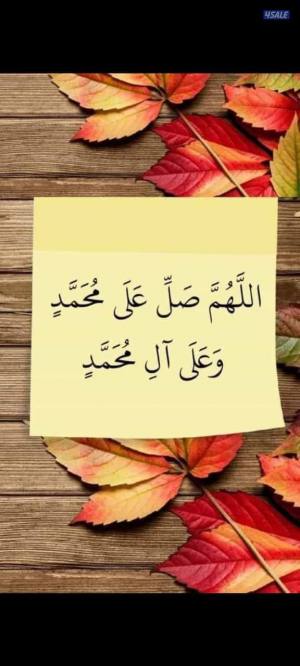 4SALE
اللَّهُمَّ صَلِّ عَلَى مُحَمَّدٍ
وَعَلَى آلِ مُحَمَّدٍ